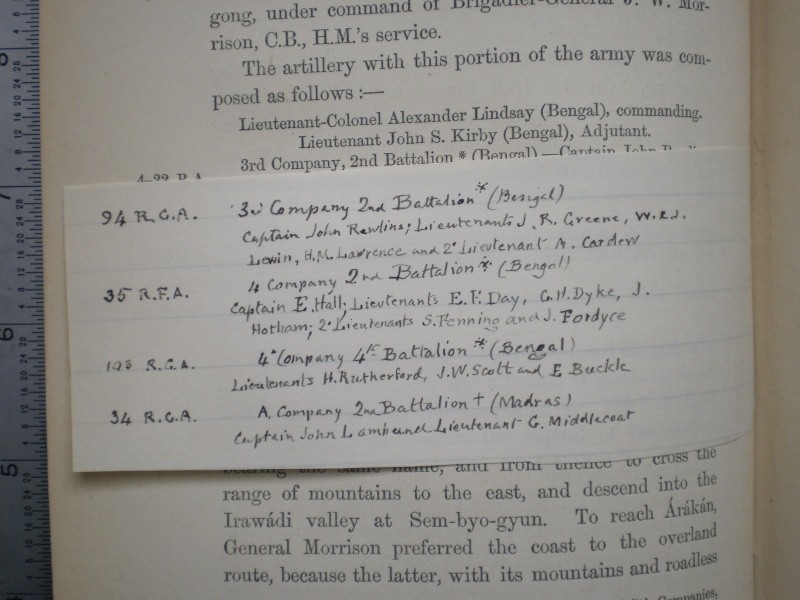 gong, under command of Brigadier-General J. W. Mor-
rison, C.B., H.M.'s service.
The artillery with this portion of the army was com-
posed as follows :—
Lieutenant-Colonel Alexander Lindsay (Bengal), commanding.
Lieutenant John S. Kirby (Bengal), Adjutant.
3rd Company, 2nd Battalion * (Bengal).—Captain John
94 R.G.A. 3rd Company 2nd Battalion* (Bengal)
Captain John Rawlins; Lieutenants J. R. Greene, W.R.J.
Lewin, H.M. Lawrence and 2d Lieutenant A. Cardew
35 R.F.A. 4 Company 2nd Battalion* (Bengal)
Captain E. Hall; Lieutenants E.F. Day, C.H. Dyke, J.
Hotham; 2d Lieutenants S. Fenning and J. Fordyce
R.G.A. 4th Company 4th Battalion* (Bengal)
Lieutenants H. Rutherford, J.W. Scott and E Buckle
34 R.G.A. A. Company 2nd Battalion † (Madras)
Captain John Lamb and Lieutenant G. Middlecoat
bearing the same name, and from thence to cross the
range of mountains to the east, and descend into the
Irawádi valley at Sem-byo-gyun. To reach Árákán,
General Morrison preferred the coast to the overland
route, because the latter, with its mountains and roadless
Companies,